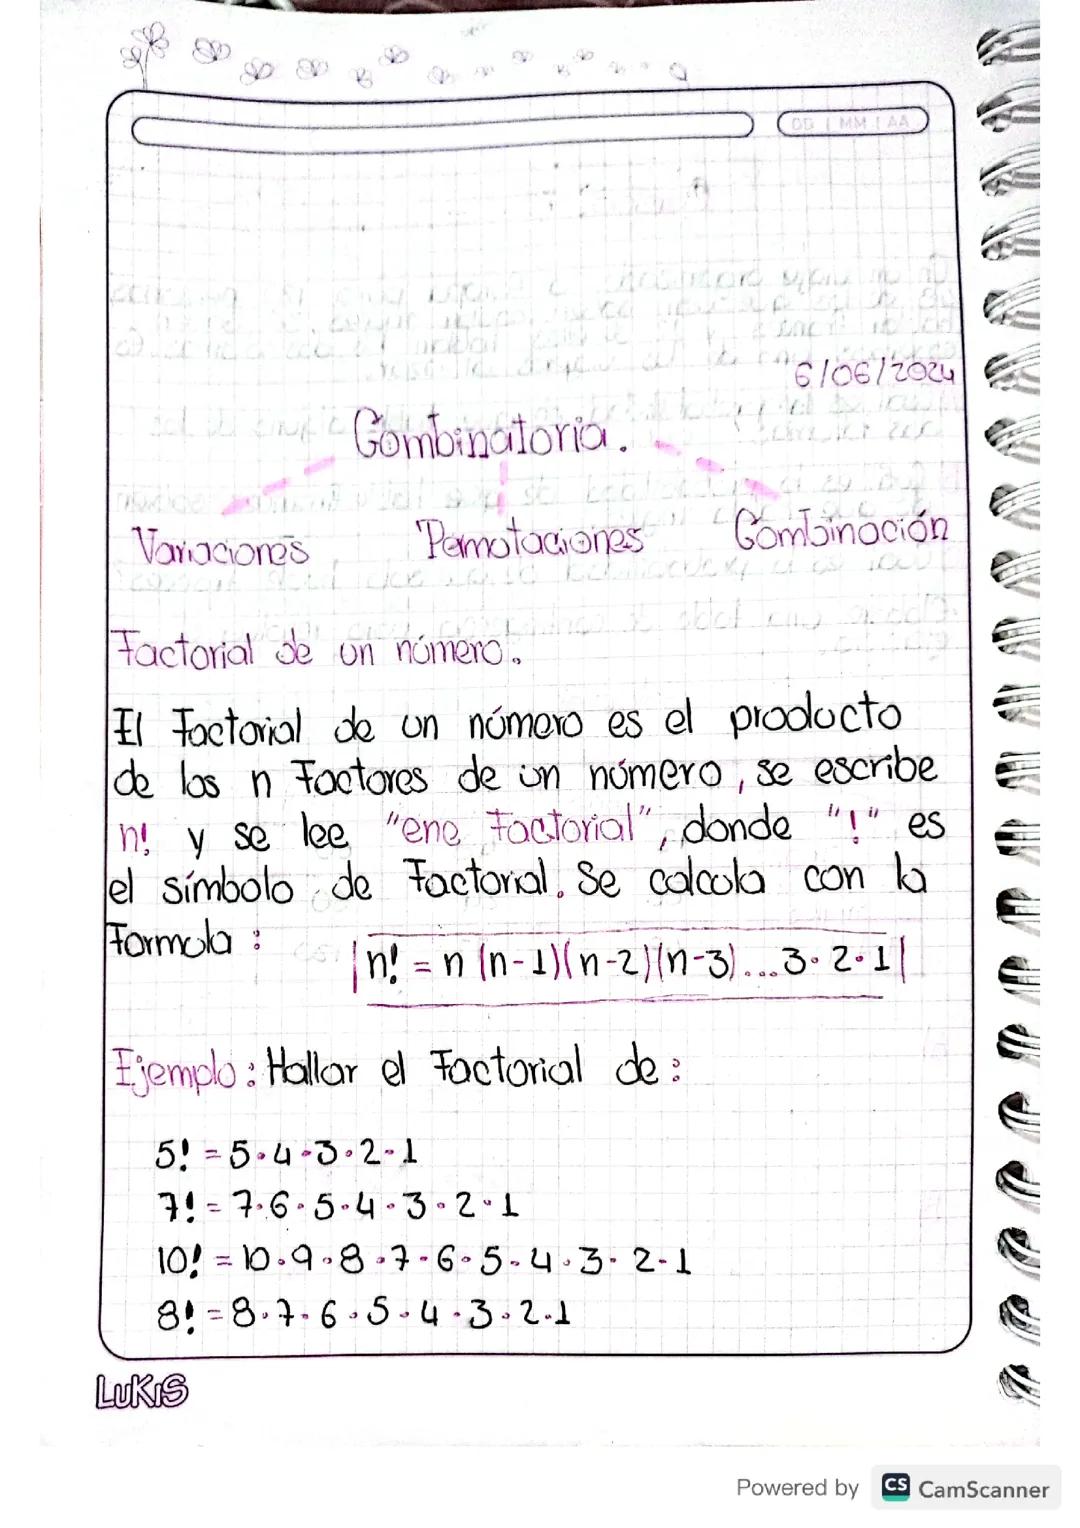 DD | MM | AA
6/06/2024
Combinatoria.
Variaciones Permutaciones Combinación
Factorial de un número.
El Factorial de un número es el producto
de los n Factores de un número, se escribe
n! y se lee "ene Factorial", donde "!" es
el símbolo de Factorial. Se calcula con la
Formula :
n! = n (n-1)(n-2)(n-3)....3·2·1
Ejemplo: Hallar el Factorial de:
5! = 5·4·3·2·1
7! = 7·6·5·4·3·2·1
10! = 10·9·8·7·6·5·4·3·2·1
8! = 8·7·6·5·4·3·2·1
LUKIS
Powered by CS CamScanner